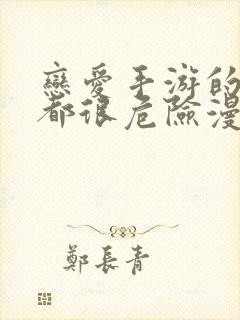 戀愛手游的
都很危險漫
鄭長青